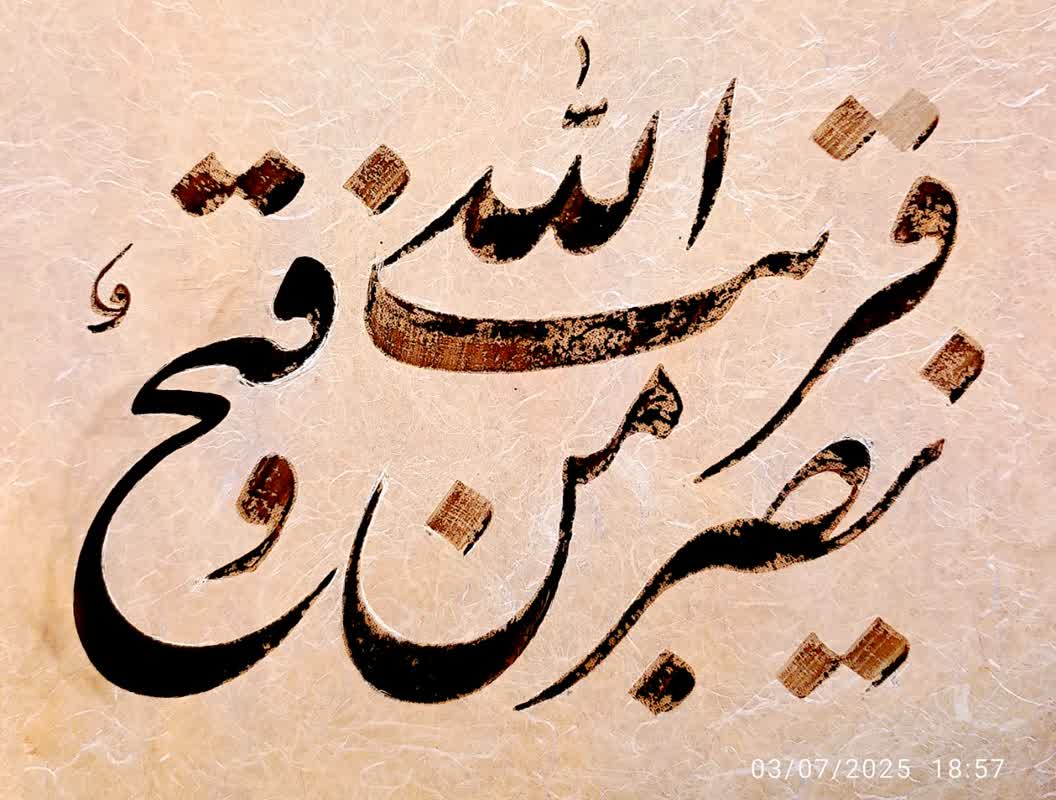 نصر من الله و فتح
قریب
03/07/2025 18:57